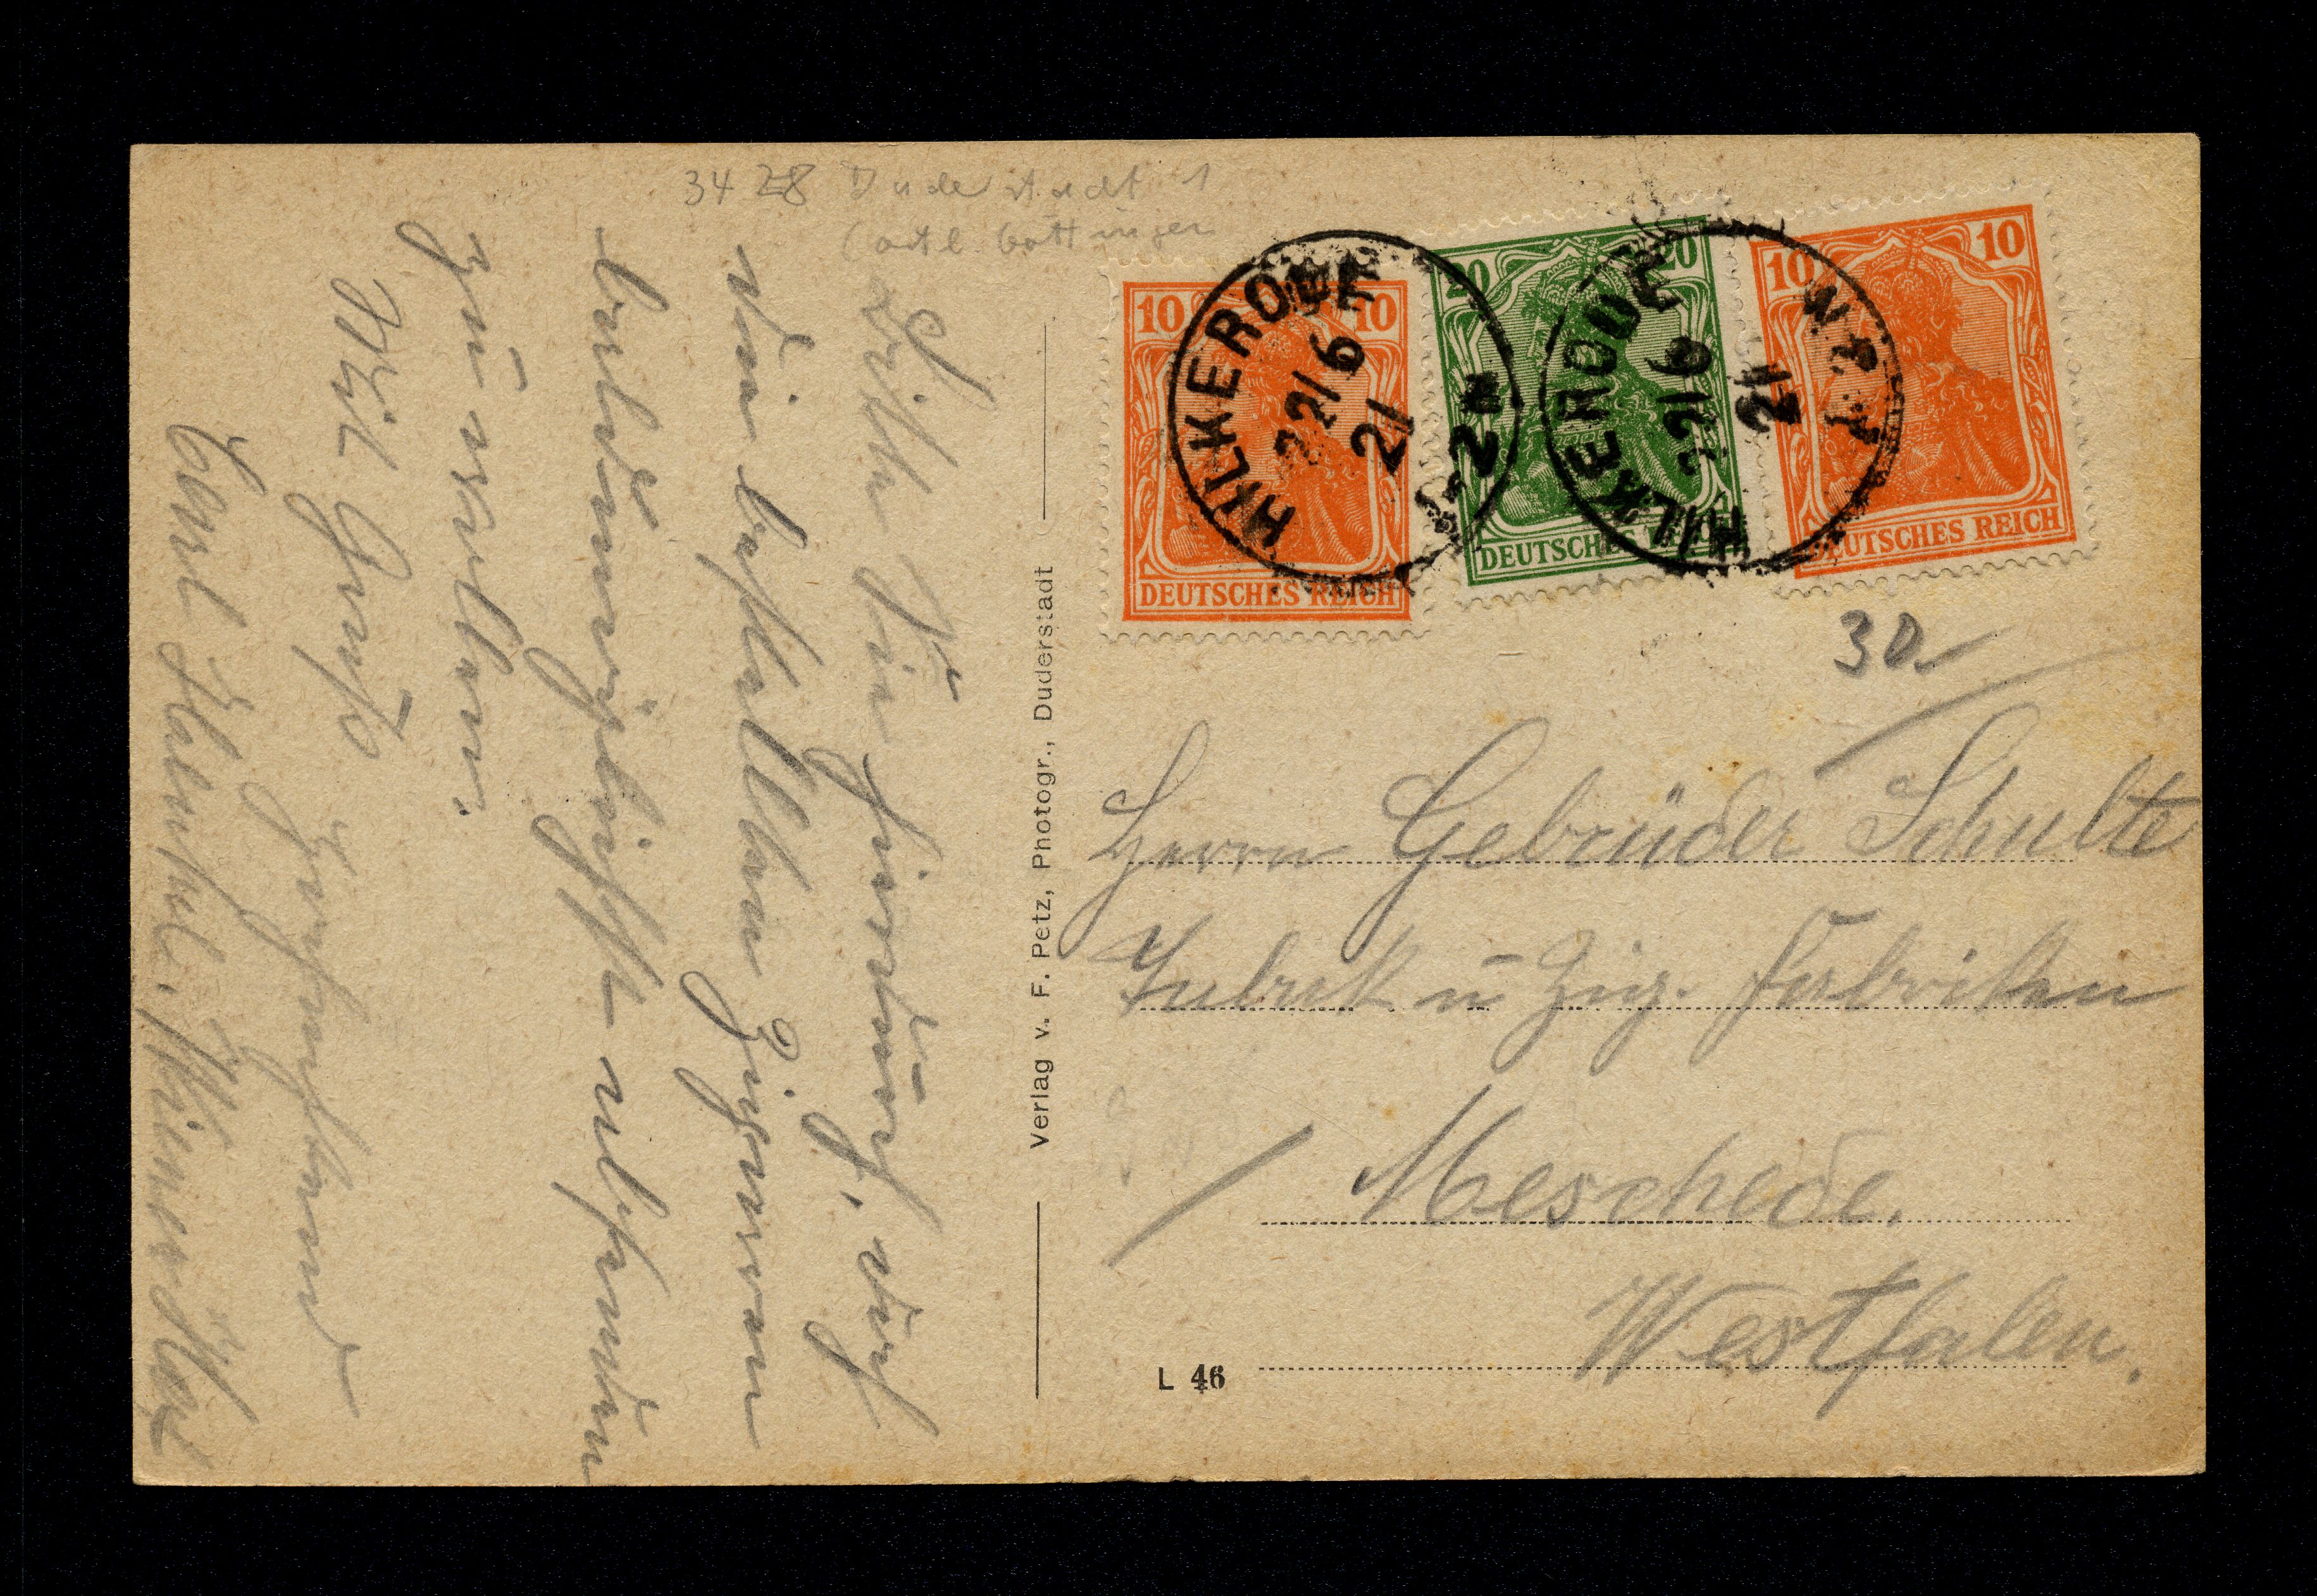 3428 Duderstadt 1
(östl. Göttingen
Bitte Sie hierdurch, auf
die bestellten Zigarren
baldmöglichst absenden
zu wollen.
Mit Gruß
Hochachtend
Carl
Verlag v. F. Petz, Photogr., Duderstadt
10 10
DEUTSCHES REICH
20 20
DEUTSCHES REICH
10 10
DEUTSCHES REICH
HILKERODE
22/6
21
-2 N
HILKERODE
22/6
21
30.-
Herrn Gebrüder Schulte
Tabak u Zig. Fabriken
Meschede.
Westfalen.
L 46